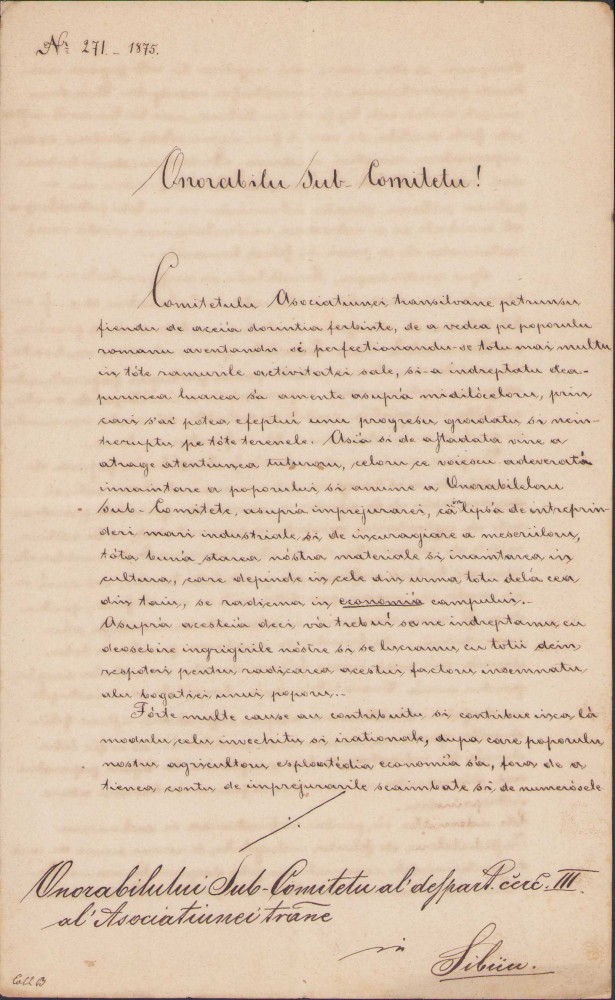 Nr. 271. – 1875.
Onorabilu Sub-Comitetu!
Comitetulu Asociatiunei transilvane petrunsu
fiendu de aceia dorintia ferbinte, de a vedea pe poporulu
romanu aventandu si perfectionandu-se totu mai multu
in tóte ramurile activitatei sale, si-a indreptatu dea-
purnrea luarea sa amente asuprá midilóceloru, prin
cari s'ar potea efeptuí unu progresu gradatu si nein-
treruptu pe tóte terenele. Asiá si de astadata vine a
atrage atentiunea tuturoru, celoru ce voiescu adeverata
innaintare a poporului, si anume a Onorabileloru
Sub-Comitete, asuprá imprejurarei, cà in lips'a de intreprin-
deri mari industriale si de incuragiare a meseriiloru,
tóta bun'a starea nóstra materiale si inaintarea in
cultura, care depinde in cele din urma totu dela cea
din taiu, se radiema in economi'a campului.–
Asupra acesteia deci va trebuí sa ne indreptamu cu
deosebire ingrigirile nóstre si se lucramu cu totii dein
respoteri pentru radicarea acestui factoru insemnatu
alu bogatiei unui poporu.–
Fórte multe cause au contribuitu si contribue inca la
modulu celu invechitu si irationale, dupa care poporulu
nostru agricultoru esploatédia economi'a s'a, fora de a
tienea contu de imprejurarile scaimbate si de numerósele
./.
Onorabilului Sub-Comitetu al' despart. cerc. III.
al' Asociatiunei trane
in
Sibiiu.
Coll B